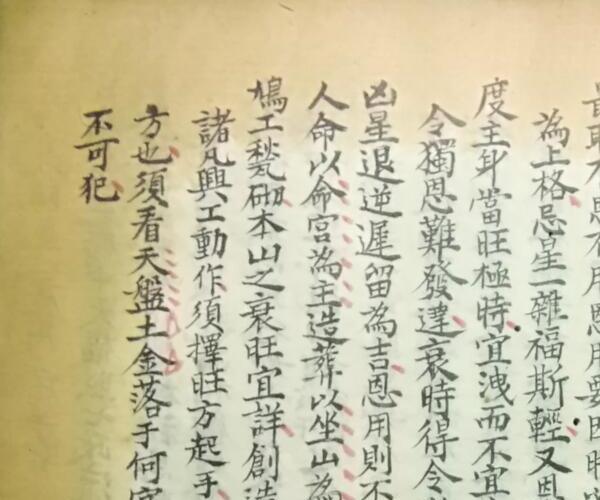 最取不忌不用恩用要因時
為上格忌星一雜福斯輕又恩
度主身當旺極時宜洩而不宜
令獨恩難發達衰時得令
凶星退逆遲留為吉恩用則不
人命以命宮為主造葬以坐山為
鳩工甃砌本山之衰旺宜詳創造
諸凡興工動作須擇旺方起手
方也須看天盤土金落于何宮
不可犯